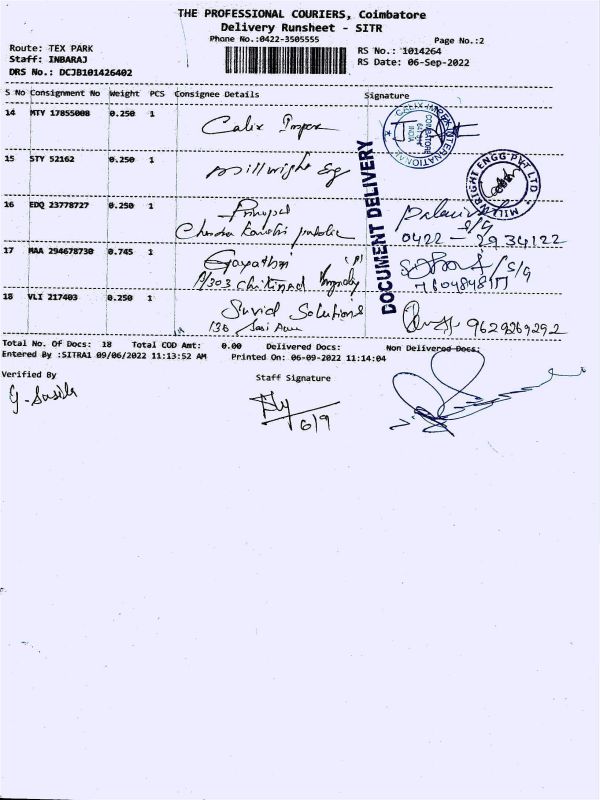 THE PROFESSIONAL COURIERS, Coimbatore
Delivery Runsheet - SITR
Phone No.:0422-3505555
Page No.:2
Route: TEX PARK
RS No.: 1014264
Staff: INBARAJ
RS Date: 06-Sep-2022
DRS No.: DCJB101426402
S No Consignment No Weight PCS Consignee Details Signature
14 MTY 17855008 0.250 1 Calix Impex
CALIX IMPEX INTERNATIONAL
COIMBATORE
INDIA
15 STY 52162 0.250 1 Millwright Eg
MILLWRIGHT ENGG PVT LTD
DOCUMENT DELIVERY
16 EDQ 23778727 0.250 1 Principal
S/G
0422 - 2934122
17 MAA 294678730 0.745 1 Gayathri
A/303 Chitinad
/S/G
18 VLI 217403 0.250 1 Suvid Solutions
13B
9629269292
Total No. Of Docs: 18 Total COD Amt: 0.00 Delivered Docs: Non Delivered Docs:
Entered By :SITRA1 09/06/2022 11:13:52 AM Printed On: 06-09-2022 11:14:04
Verified By
Staff Signature
G. Sasila
6/9